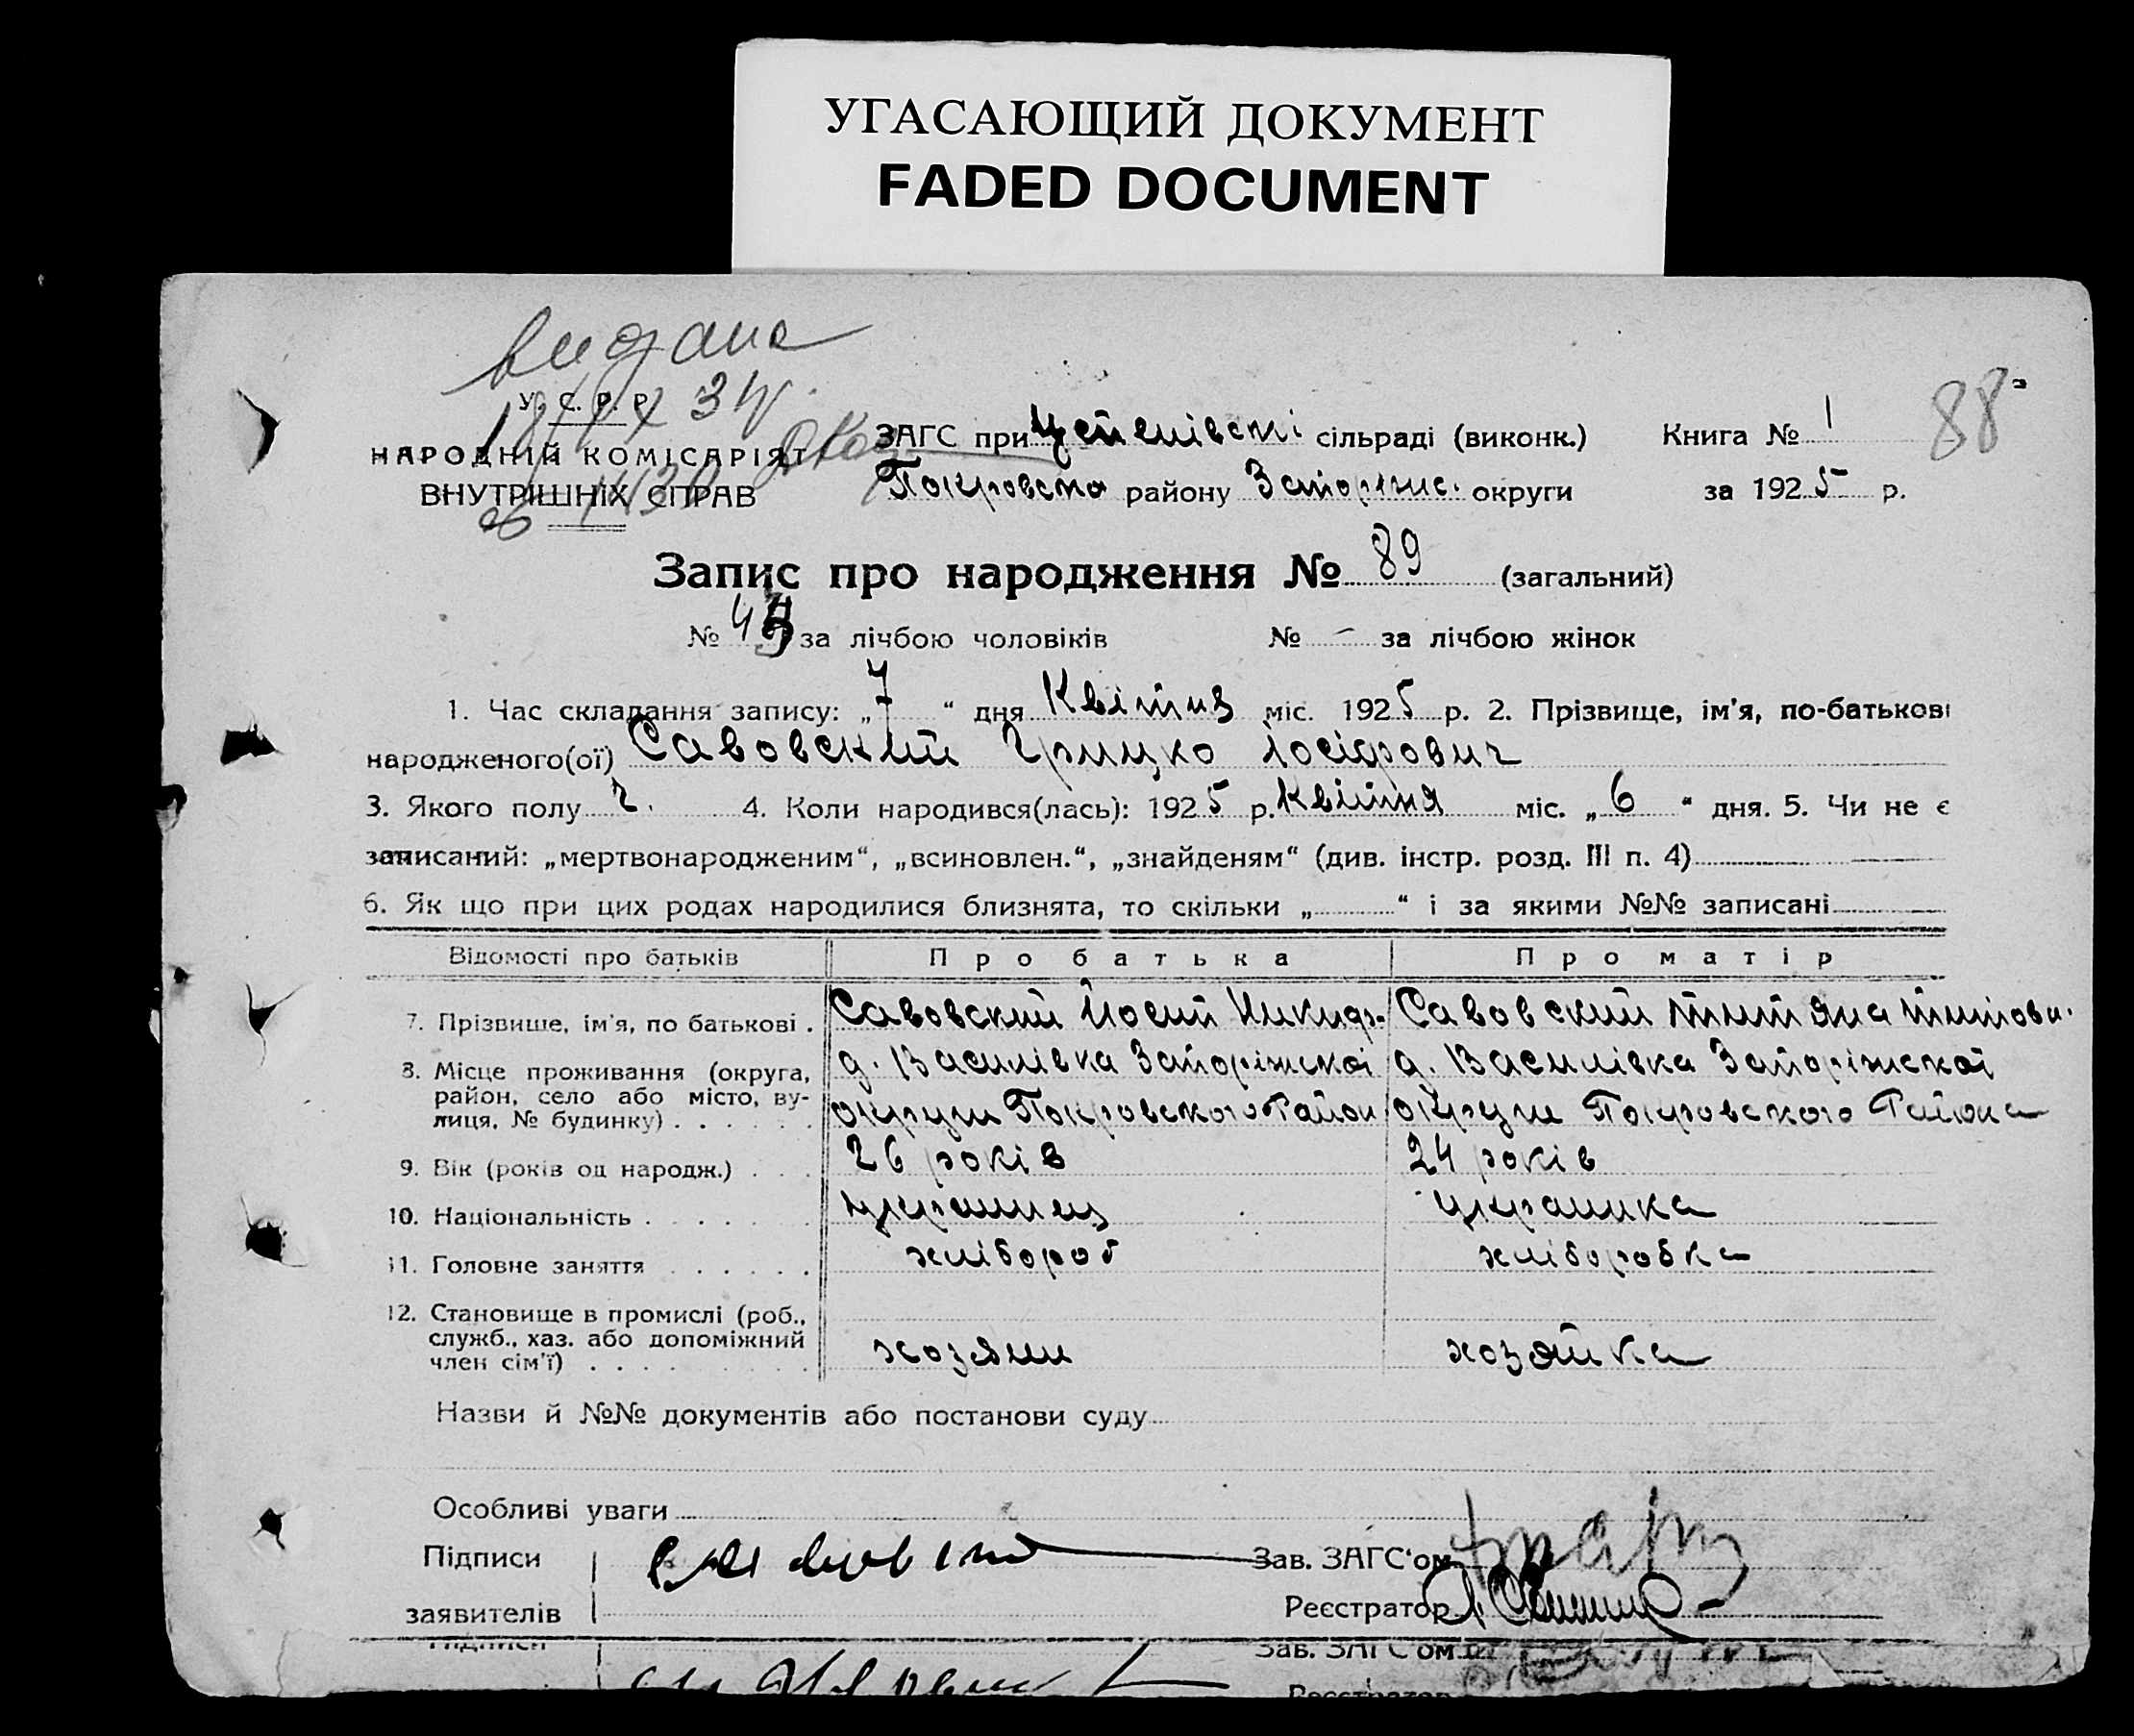 УГАСАЮЩИЙ ДОКУМЕНТ
FADED DOCUMENT
видана
У. С. Р. Р.
НАРОДНІЙ КОМІСАРІЯТ
ВНУТРІШНІХ СПРАВ
ЗАГС при сільраді (виконк.) Книга № 1 88
Покровско району Запоріжс. округи за 1925 р.
Запис про народження № 89 (загальний)
№ за лічбою чоловіків № – за лічбою жінок
1. Час складання запису: „7“ дня Квітня міс. 1925 р. 2. Прізвище, ім'я, по-батькові
народженого(ої) Савовский Грицко Іосіфович
3. Якого полу ч. 4. Коли народився(лась): 1925 р. Квітня міс. „6“ дня. 5. Чи не є
записаний: „мертвонародженим“, „всиновлен.“, „знайденям“ (див. інстр. розд. III п. 4)
6. Як що при цих родах народилися близнята, то скільки „ “ і за якими №№ записані
Відомості про батьків Про батька Про матір
7. Прізвище, ім'я, по батькові . Савовский Йосип Никиф. Савовский Титяна
8. Місце проживання (округа, д. Василівка Запоріжскої д. Василівка Запоріжскої
район, село або місто, ву- округи Покровского Район округи Покровского Района
лиця, № будинку) . . . . . .
9. Вік (років од народж.) . . . 26 років 24 років
10. Національність . . . . . . . украинец украинка
11. Головне заняття . . . . . . хлібороб хліборобка
12. Становище в промислі (роб.,
служб., хаз. або допоміжний хозяин хозяйка
член сім'ї) . . . . . . . . .
Назви й №№ документів або постанови суду
Особливі уваги
Підписи Зав. ЗАГС'ом
заявителів Реєстратор
Підписи Зав. ЗАГС'ом
Реєстратор